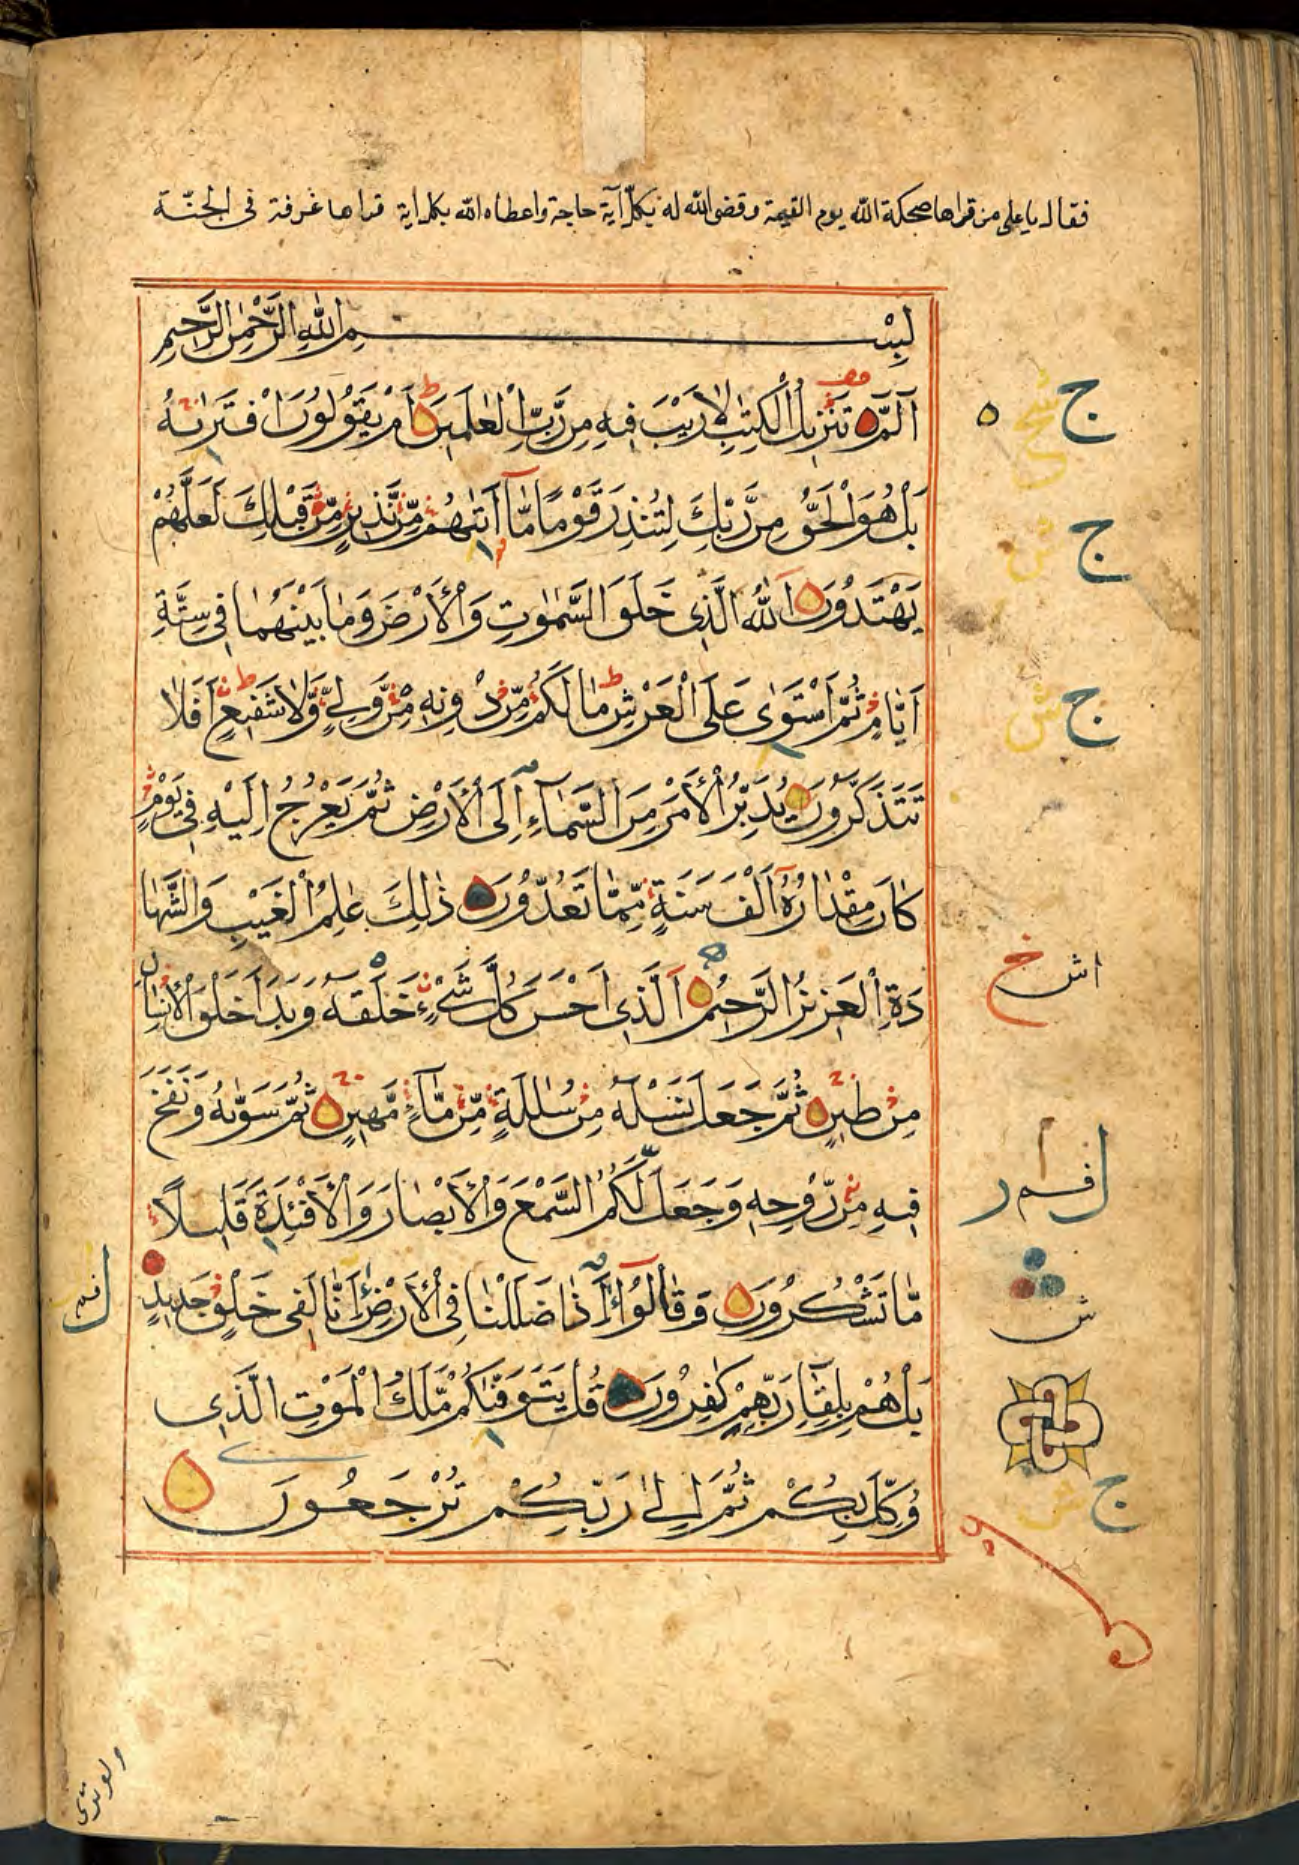 فقال ياعلى من قراها ضحكة الله يوم القيمة وقضى الله له بكل آية حاجة واعطاه الله بكل اية قراها غرفة فى الجنة
بِسْمِ اللّٰهِ الرَّحْمٰنِ الرَّحِيمِ
الٓمّٓ تَنْزِيلُ الْكِتٰبِ لَا رَيْبَ فِيهِ مِنْ رَّبِّ الْعٰلَمِينَ اَمْ يَقُولُونَ افْتَرٰىهُ
بَلْ هُوَ الْحَقُّ مِنْ رَّبِّكَ لِتُنْذِرَ قَوْمًا مَّآ اَتٰىهُمْ مِّنْ نَّذِيرٍ مِّنْ قَبْلِكَ لَعَلَّهُمْ
يَهْتَدُونَ اَللّٰهُ الَّذِى خَلَقَ السَّمٰوٰتِ وَالْاَرْضَ وَمَا بَيْنَهُمَا فِى سِتَّةِ
اَيَّامٍ ثُمَّ اسْتَوٰى عَلَى الْعَرْشِ مَا لَكُمْ مِّنْ دُونِهٖ مِنْ وَّلِىٍّ وَّلَا شَفِيعٍ اَفَلَا
تَتَذَكَّرُونَ يُدَبِّرُ الْاَمْرَ مِنَ السَّمَآءِ اِلَى الْاَرْضِ ثُمَّ يَعْرُجُ اِلَيْهِ فِى يَوْمٍ
كَانَ مِقْدَارُهٗٓ اَلْفَ سَنَةٍ مِّمَّا تَعُدُّونَ ذٰلِكَ عٰلِمُ الْغَيْبِ وَالشَّهَا
دَةِ الْعَزِيزُ الرَّحِيمُ اَلَّذِى اَحْسَنَ كُلَّ شَىْءٍ خَلَقَهٗ وَبَدَاَ خَلْقَ الْاِنْسَانِ
مِنْ طِينٍ ثُمَّ جَعَلَ نَسْلَهٗ مِنْ سُلٰلَةٍ مِّنْ مَّآءٍ مَّهِينٍ ثُمَّ سَوّٰىهُ وَنَفَخَ
فِيهِ مِنْ رُّوحِهٖ وَجَعَلَ لَكُمُ السَّمْعَ وَالْاَبْصَارَ وَالْاَفْئِدَةَ قَلِيلًا
مَّا تَشْكُرُونَ وَقَالُوٓا ءَاِذَا ضَلَلْنَا فِى الْاَرْضِ ءَاِنَّا لَفِى خَلْقٍ جَدِيدٍ
بَلْ هُمْ بِلِقَآءِ رَبِّهِمْ كٰفِرُونَ قُلْ يَتَوَفّٰىكُمْ مَّلَكُ الْمَوْتِ الَّذِى
وُكِّلَ بِكُمْ ثُمَّ اِلٰى رَبِّكُمْ تُرْجَعُونَ
ج
ج
ج
ش
ج